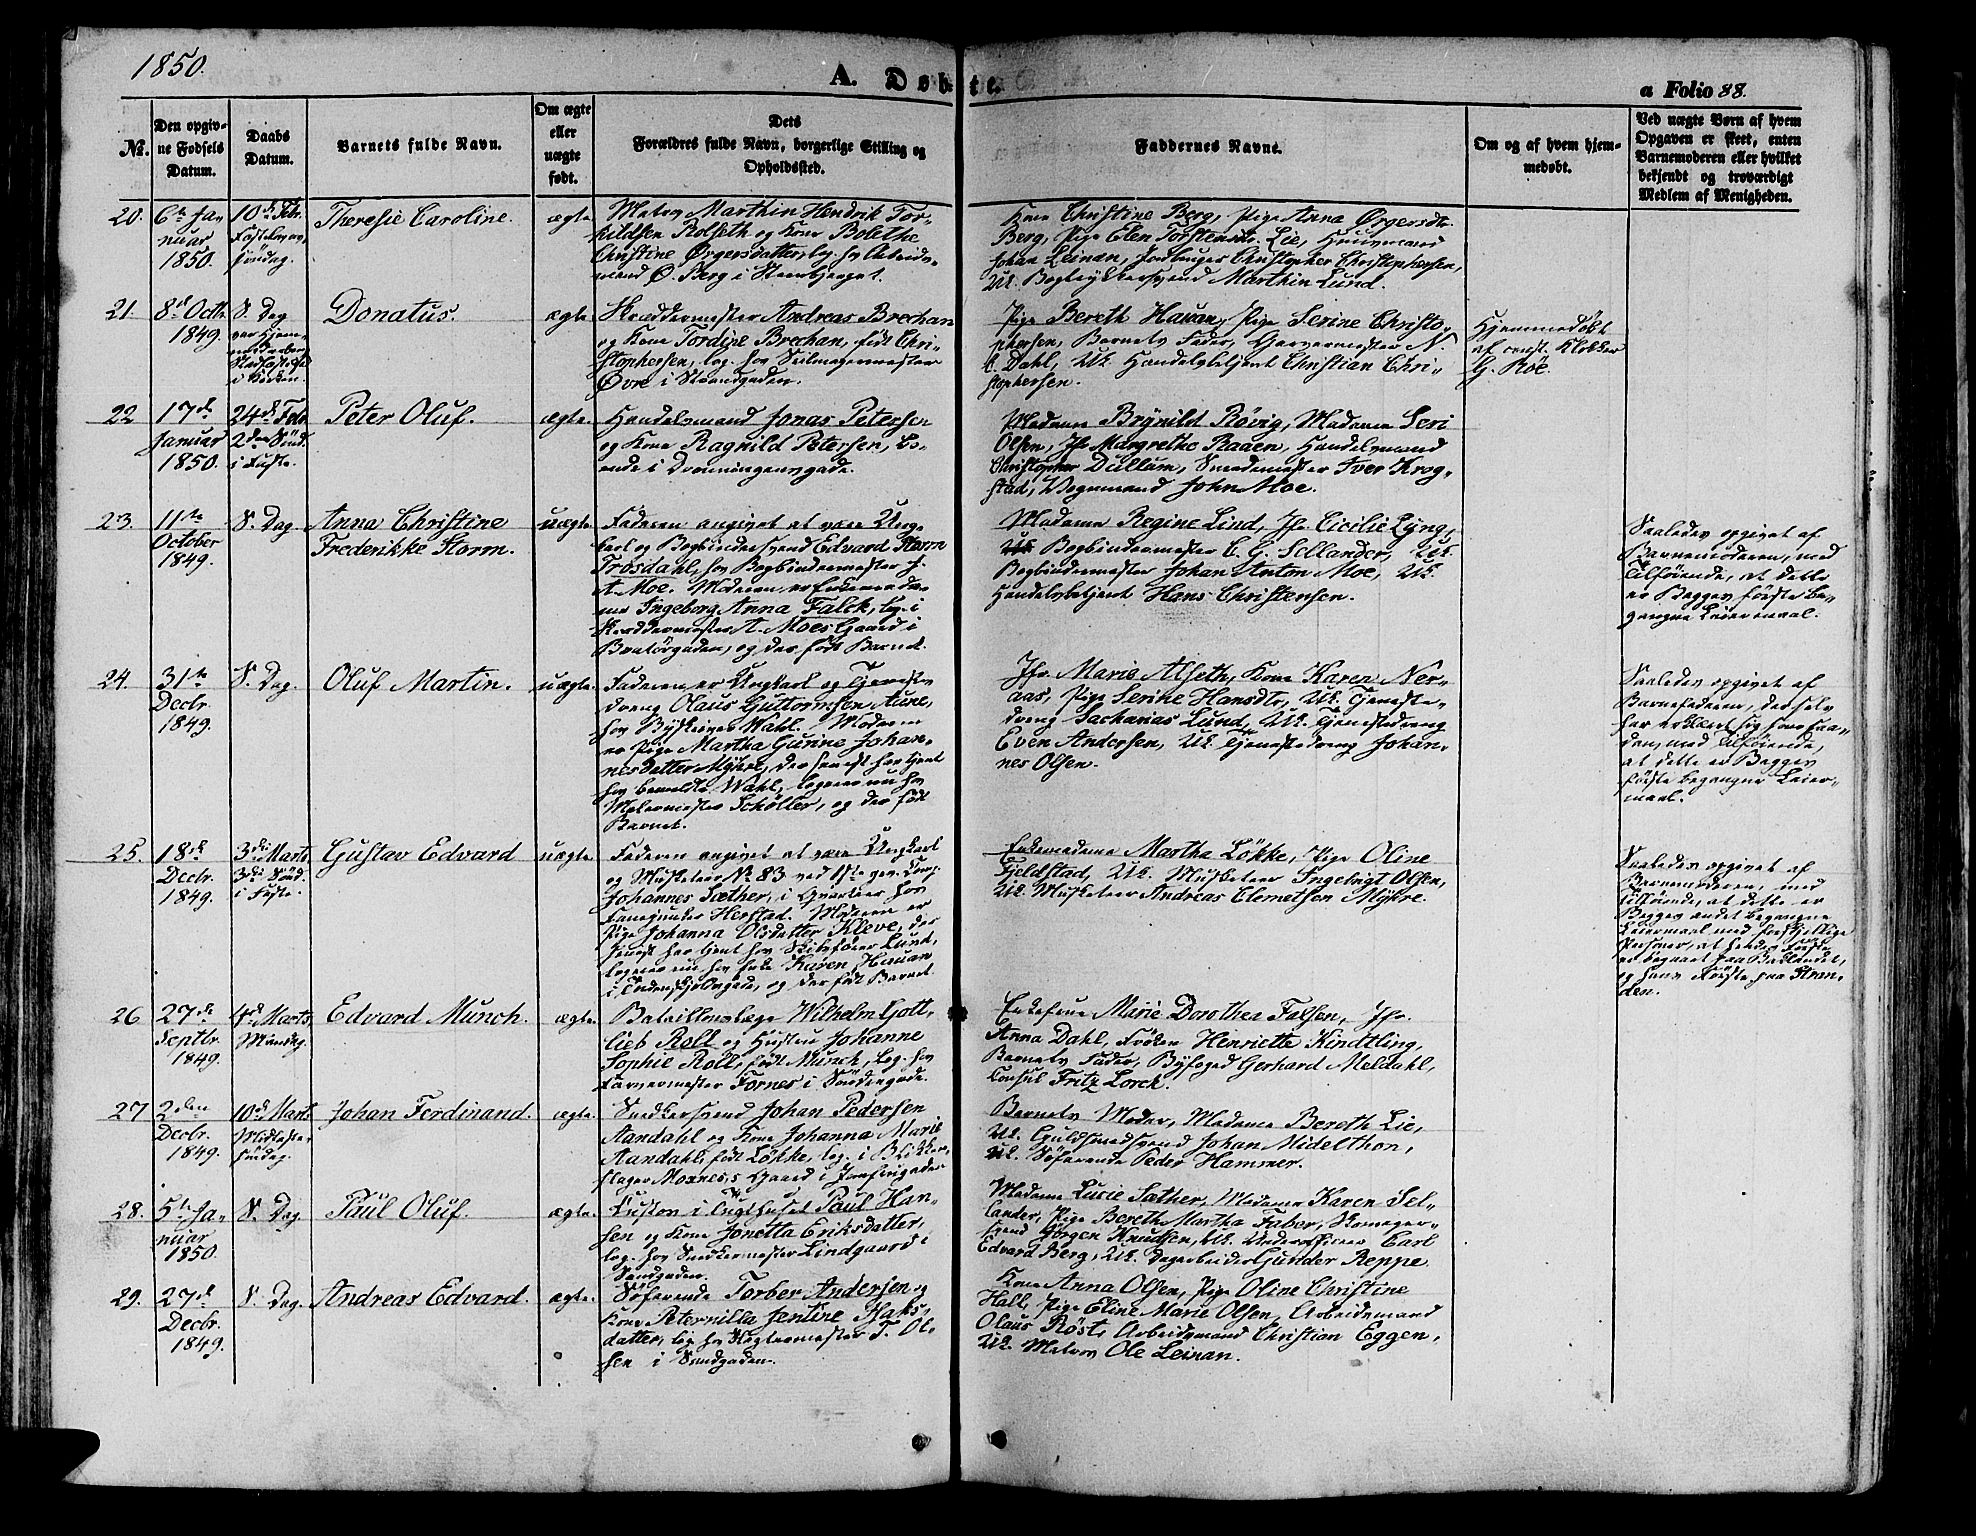 1850.
A. Døbte.
a Folio 88.
No.
Den opgiv-
ne Fødsels
Datum.
Daabs
Datum.
Barnets fulde Navn.
Om ægte
eller
uægte
født.
Dets
Forældres fulde Navn, borgerlige Stilling og
Opholdssted.
Faddernes Navne.
Om og af hvem hjem-
medøbt.
Ved uægte Børn af hvem
Opgaven er skeet, enten
Barnemoderen eller hvilket
bekjendt og troværdigt
Medlem af Menigheden.
20.
6te Ja-
nuar
1850.
10de Febr.
Fastelavns
söndag.
Theresie Caroline.
ægte
Matros Marthin Hendrik Tor-
kildsen Rolseth og Kone Bolethe
Christine Ørgersdatter, log. hos Arbeids-
mand Ø. Berg i Steenbjerget.
Kone Christine Berg, Pige Anna Ørgersdtr.
Berg, Pige Elen Torstensdtr. Lie, Huusmand
Johan Leinan, Christopher Christophersen,
Uk. Bogtrykkersvend Marthin Lund.
21.
8de Octbr.
1849.
S. Dag
i Kirken.
Donatus.
ægte
Skræddermester Andreas Brechan
og Kone Tordine Brechan, født Chri-
stophersen, log. hos Seilmagermester
Øvre i Strandgaden.
Pige Bereth Hauan, Pige Serine Christo-
phersen, Barnets Fader, Garvermester N.
L. Dahl, Uk. Handelsbetjent Christian Chri-
stophersen.
Hjemmedøbt
af const. Klokker
G. Röe.
22
17de
Januar
1850.
24de Febr.
2den Sönd.
i Faste.
Peter Oluf.
ægte.
Handelsmand Jonas Petersen
og Kone Ragnild Petersen, bo-
ende i Dronningensgade.
Madame Brynild Røvig, Madame Seri
Olsen, Jfr. Margrethe Raaen, Handelsmand
Christopher Dullum, Smedemester Iver Krog-
stad, Vognmand John Moe.
23.
11te
October
1849.
S. Dag.
Anna Christine
Frederikke Storm.
uægte
Faderen angivet at være Ung-
karl og Bogbindersvend Edvard Storm
Trosdahl, hos Bogbindermester J.
A. Moe. Moderen er Enkemada-
me Ingeborg Anna Falck, log. i
Skræddermester A. Moes Gaard i
Bratørgaden, og der født Barnet.
Madame Regine Lind, Jfr. Cicilie Lyng,
Uk. Bogbindermester C. G. Sellander, Uk.
Bogbindermester Johan Anton Moe, Uk.
Handelsbetjent Hans Christensen.
Saaledes opgivet af
Barnemoderen, med
Tilføiende, at dette
er Begges første be-
gangne Leiermaal.
24.
31te
Decbr.
1849.
S. Dag.
Oluf Martin.
uægte.
Faderen er Ungkarl og Tjeneste-
dreng Olaus Guttormsen Aune,
hos Byskriver Wahl. Moderen
er Pige Martha Gurine Johan-
nesdatter Myhre, der senest har tjent
hos bemeldte Wahl, logerer nu hos
Malermester Schøller, og der født
Barnet.
Jfr. Marie Alseth, Kone Karen Ner-
aas, Pige Serine Hansdtr, Uk. Tjeneste-
dreng Sacharias Lund, Uk. Tjenestedreng
Even Andersen, Uk. Tjenestedreng Johan-
nes Olsen.
Saaledes opgivet af
Barnefaderen, der selv
har erklært sig som Fa-
der, med Tilføiende,
at dette er Begges
første begangne Leier-
maal.
25.
18de
Decbr.
1849.
3die Marts
3die Sönd.
i Faste.
Gustav Edvard
uægte
Faderen angivet at være Ungkarl
og Musketeer No. 83 ved 1ste gev. Corps
Johannes Sæther, i Qvarteer hos
Fanejunker Herstad. Moderen er
Pige Johanna Olsdatter Kleve, der
senest har tjent hos Skibsfører Lund,
logerer nu hos Enke Karen Hauan
i Tordenskjoldsgade, og der født Barnet
Enkemadame Martha Løkke, Pige Oline
Gjeldstad, Uk. Musketeer Ingebrigt Olsen,
Uk. Musketeer Andreas Clemetsen Myhre.
Saaledes opgivet af
Barnemoderen, med
tilføiende, at dette er
Begges andet begangne
Leiermaal med forskjellige
Personer, at hendes første
er begaaet paa Baklandet,
og hans første paa Stran-
den.
26
27de
Septbr.
1849.
4de Marts
Mandag.
Edvard Munch.
ægte.
Bataillonslæge Wilhelm Gott-
lieb Roll og Hustru Johanne
Sophie Roll, født Munch, log. hos
Farvermester Fornes i Söndregade.
Enkefrue Marie Dorothea Falsen, Jfr.
Anna Dahl, Frøken Henriette Kindtling,
Barnets Fader, Byfoged Gerhard Meldahl,
Consul Fritz Lorck.
27
2den
Decbr.
1849.
10de Marts
Midfaste-
söndag.
Johan Ferdinand.
ægte.
Snedkersvend Johan Pedersen
Aandahl og Kone Johanna Marie
Aandahl, født Løkke, log. i Blikken-
slager Moxness Gaard i Jomfrugaden
Barnets Moder, Madame Bereth Lie,
Uk. Guldsmedsvend Johan Midelthon,
Uk. Søfarende Peder Hammer.
28.
5te Ja-
nuar
1850
S. Dag
Paul Oluf.
ægte.
Kustos i Tugthuset Paul Han-
sen og Kone Jonetta Eriksdatter,
log. hos Snedkermester Lindgaard i
Sandgaden.
Madame Lucie Sæther, Madame Karen Sel-
lander, Pige Bereth Martha Faber, Skomager-
svend Jørgen Knudsen, Uk. Underofficer Carl
Edvard Berg, Uk. Dagarbeider Gunder Reppe.
29.
27de
Decbr.
1849.
S. Dag.
Andreas Edvard.
ægte.
Søfarende Torber Andersen og
Kone Peternilla Jentine Isaks-
datter, log. hos Regtermester T. Ol-
sen i Sandgaden.
Kone Anna Olsen, Pige Oline Christine
Hall, Pige Eline Marie Olsen, Arbeidsmand
Olaus Røst, Arbeidsmand Christian Eggen,
Uk. Matros Ole Leinan.